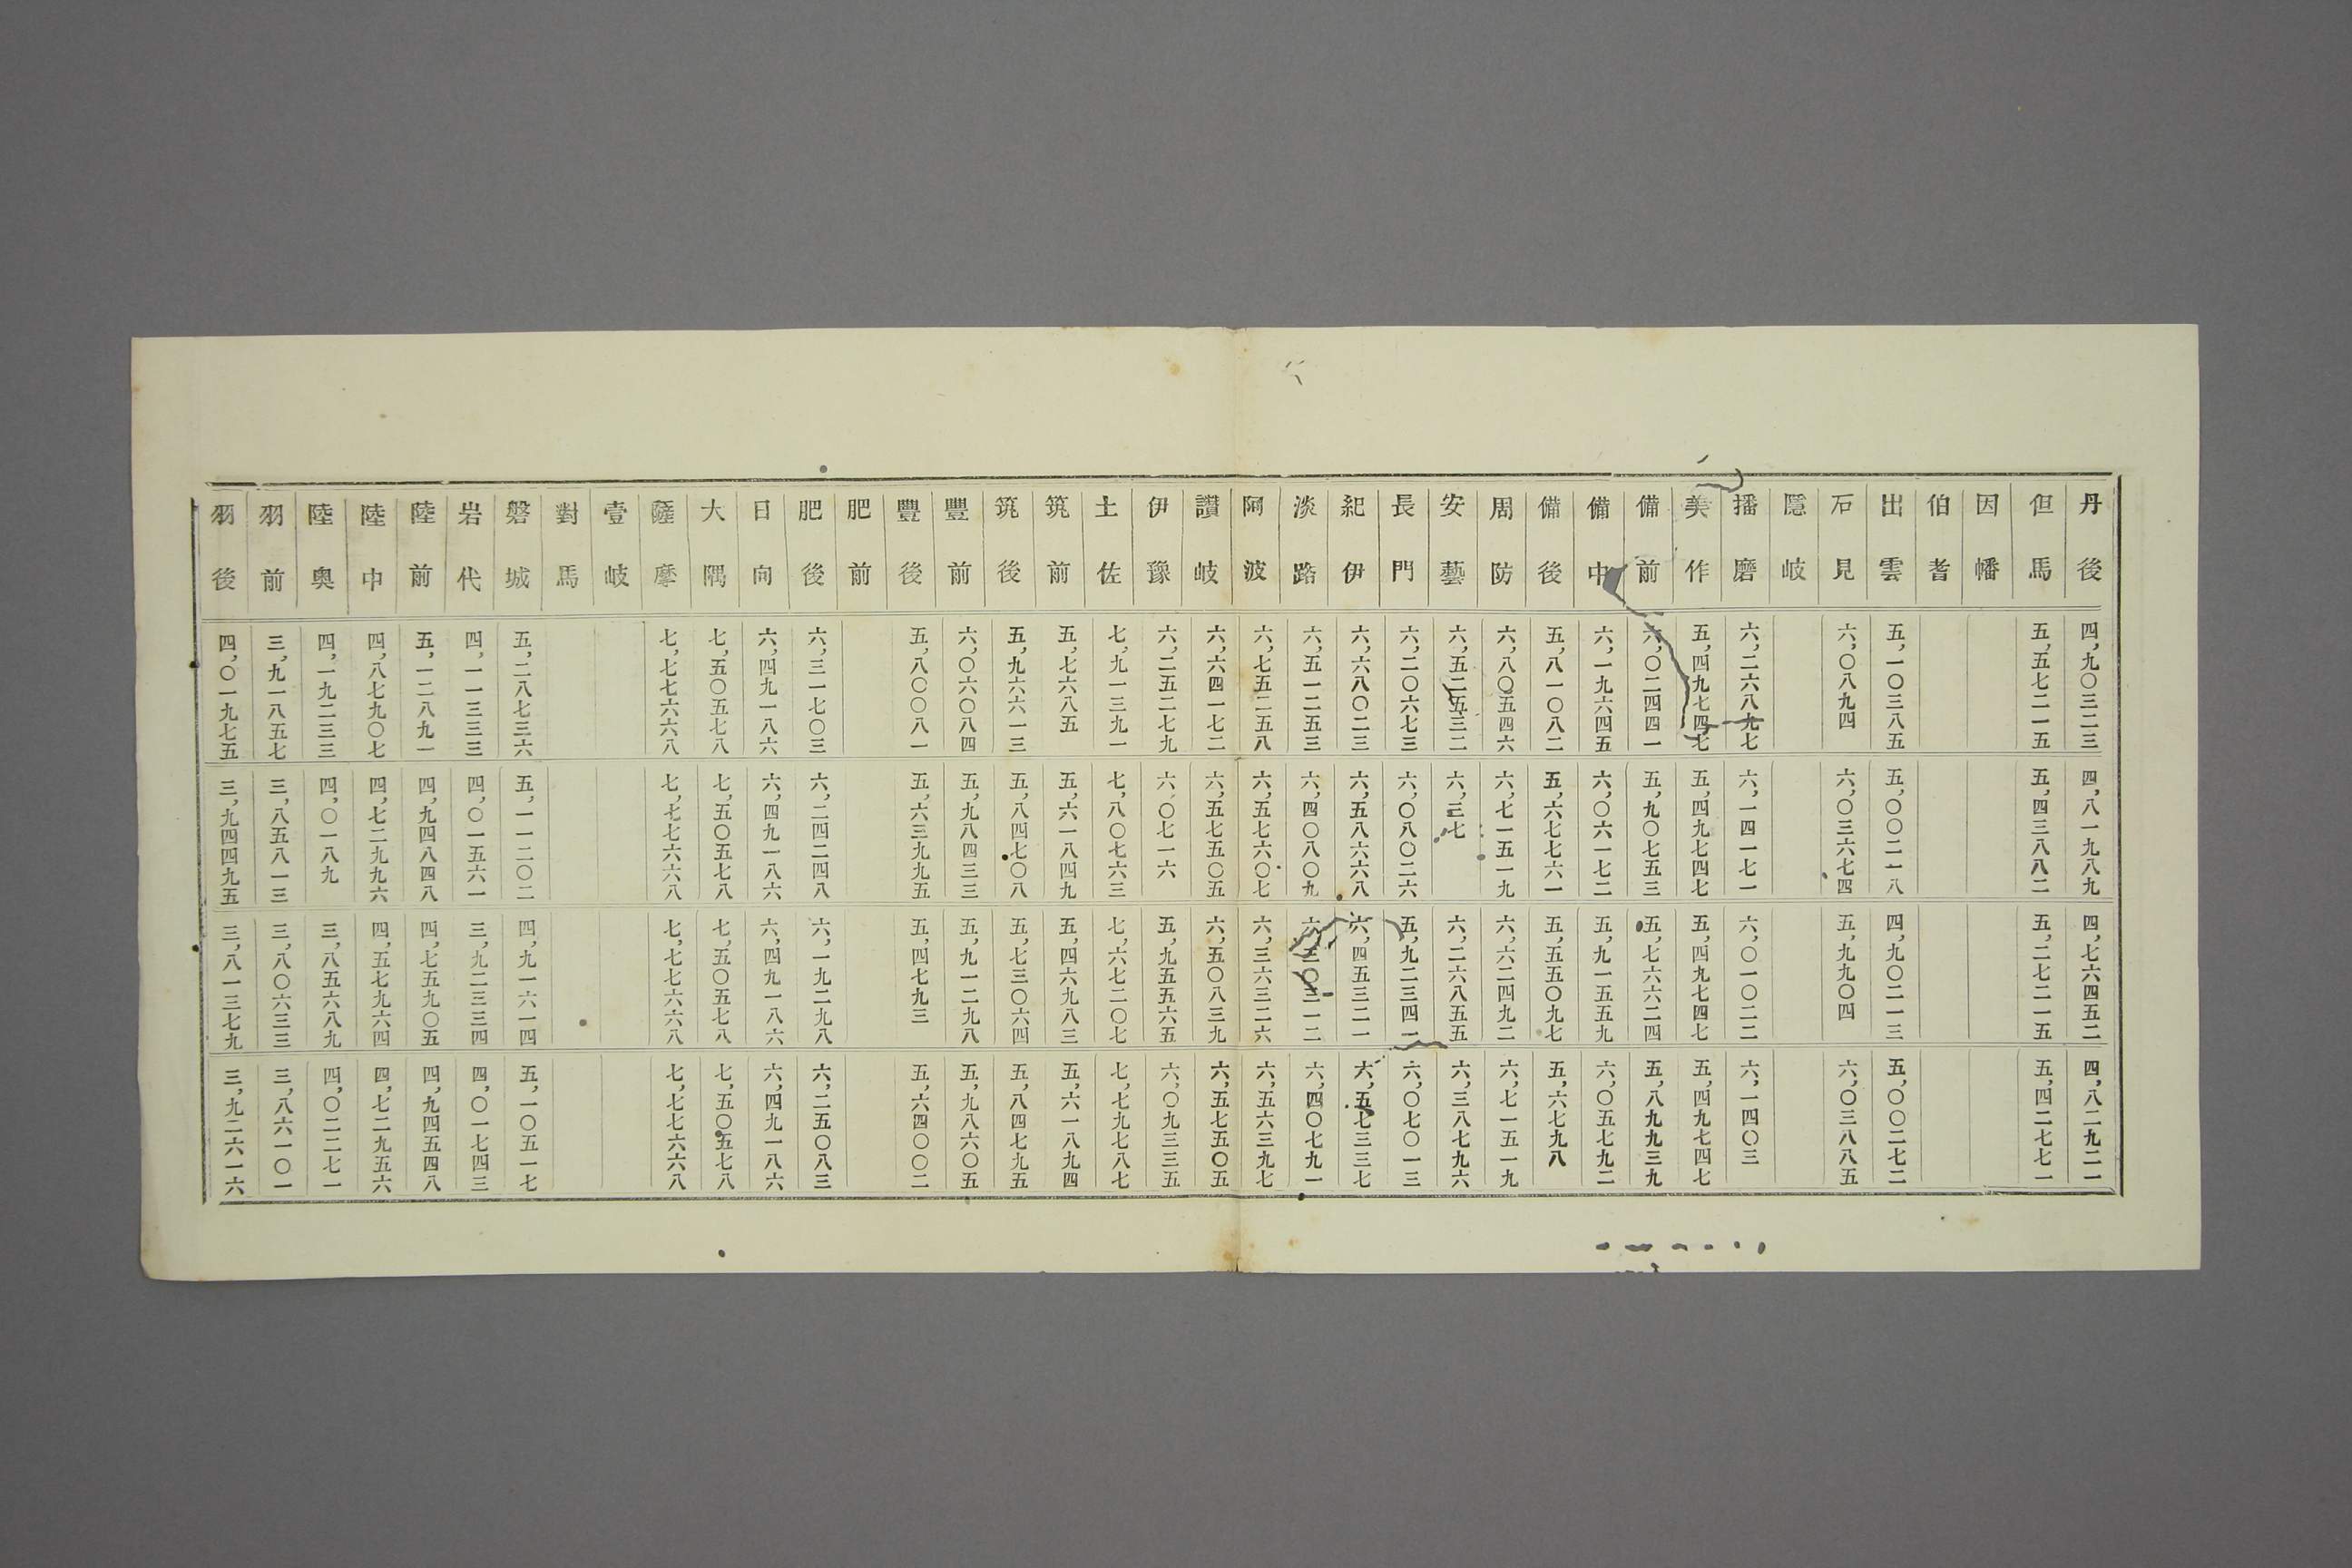 丹後 四,九〇三二三 四,八一九八九 四,七六四五二 四,八二九二一
但馬 五,五七二一五 五,四三八八二 五,二七二一五 五,四二七七一
因幡
伯耆
出雲 五,一〇三八五 五,〇〇二一八 四,九〇二一三 五,〇〇二七二
石見 六,〇八九四 六,〇三六七四 五,九九〇四 六,〇三八八五
隱岐
播磨 六,二六八九七 六,一四一七一 六,〇一〇二二 六,一四〇三
美作 五,四九七四七 五,四九七四七 五,四九七四七 五,四九七四七
備前 六,〇二四四一 五,九〇七五三 五,七六六二四 五,八九九三九
備中 六,一九六四五 六,〇六一七二 五,九一五五九 六,〇五七九二
備後 五,八一〇八二 五,六七七六一 五,五五〇九七 五,六七九八
周防 六,八〇五四六 六,七一五一九 六,六二四九二 六,七一五一九
安藝 六,五二五三二 六,三七 六,二六八五五 六,三八七九六
長門 六,二〇六七三 六,〇八〇二六 五,九二三四二 六,〇七〇一三
紀伊 六,六八〇二三 六,五八六六八 六,四五三二一 六,五七三三七
淡路 六,五一二五三 六,四〇八〇九 六,三〇三一二 六,四〇七九一
阿波 六,七五二五八 六,五七六〇七 六,三六三二六 六,五六三九七
讃岐 六,六四一七二 六,五七五〇五 六,五〇八三九 六,五七五〇五
伊豫 六,二五二七九 六,〇七一六 五,九五五六五 六,〇九三三五
土佐 七,九一三九一 七,八〇七六三 七,六七二〇七 七,七九七八七
筑前 五,七六八五 五,六一八四九 五,四六九八三 五,六一八九四
筑後 五,九六六一三 五,八四七〇八 五,七三〇六四 五,八四七九五
豐前 六,〇六〇八四 五,九八四三三 五,九一二九八 五,九八六〇五
豐後 五,八〇〇八一 五,六三九九五 五,四七九三 五,六四〇〇二
肥前
肥後 六,三一七〇三 六,二四二四八 六,一九二九八 六,二五〇八三
日向 六,四九一八六 六,四九一八六 六,四九一八六 六,四九一八六
大隅 七,五〇五七八 七,五〇五七八 七,五〇五七八 七,五〇五七八
薩摩 七,七七六六八 七,七七六六八 七,七七六六八 七,七七六六八
壹岐
對馬
磐城 五,二八七三六 五,一一二〇二 四,九一六一四 五,一〇五一七
岩代 四,一一三三三 四,〇一五六一 三,九二三三四 四,〇一七四三
陸前 五,一二八九一 四,九四八四八 四,七五九〇五 四,九四五四八
陸中 四,八七九〇七 四,七二九九六 四,五七九六四 四,七二九五六
陸奧 四,一九二三三 四,〇一八九 三,八五六八九 四,〇二二七一
羽前 三,九一八五七 三,八五八一三 三,八〇六三三 三,八六一〇一
羽後 四,〇一九七五 三,九四四九五 三,八一三七九 三,九二六一六